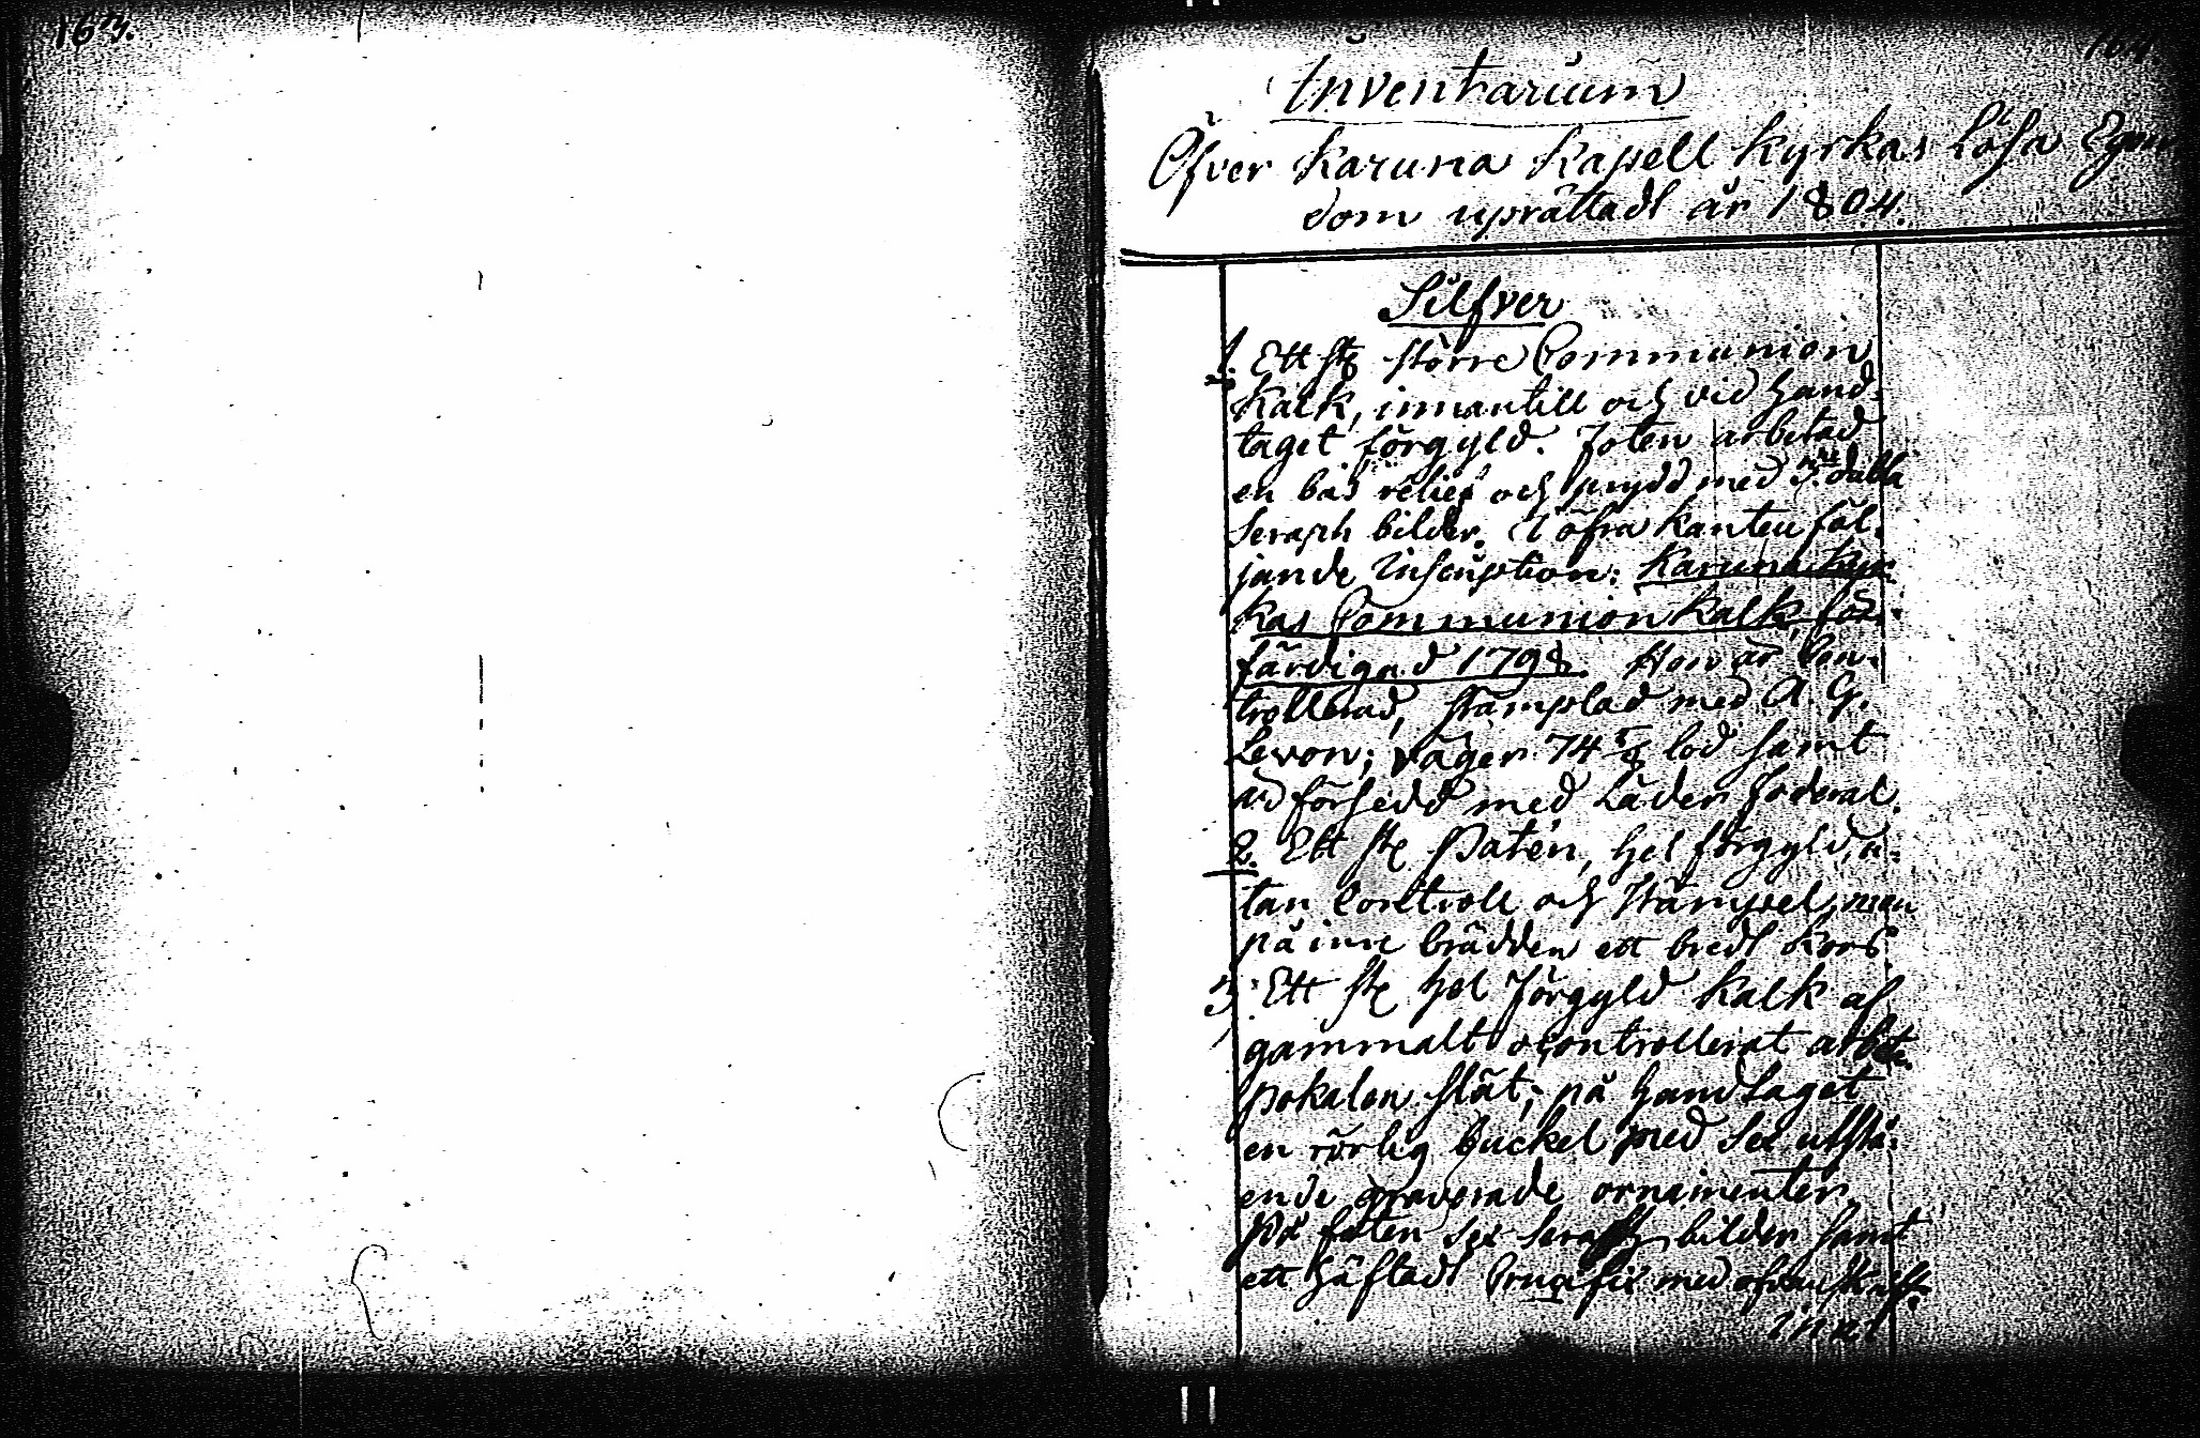 163.
164.
Inventarium
Öfver Karuna Kapell Kyrkas Lösa Egen
dom uprättadt år 1804.
Silfver
1. Ett st. större Communion
Kalk, innantill och vid hand-
taget förgyld. Foten arbetad
en bas relief och prydd med 3ne dubla
Seraph bilder. I öfra kanten föl-
jande Inscription: Karuna Kyr-
kas Communion Kalk, för-
färdigad 1798. Hon är Con-
trollerad, stämplad med A. G.
Levon; väger 74 5/8 lod samt
försedd med Läder foderal.
2. Ett st. Patén, hel förgyld, u-
tan Controll och Stämpel, men
på inre brädden ett bredt Kors.
3. Ett st. hel förgyld Kalk af
gammalt ocontrollerat arbete
pokalen slät; på handtaget
en rörlig buckel med sex utstå-
ende graverade ornamenter.
På foten sex Seraph bilder samt
ett häftadt Crucifix med ofvanskrift